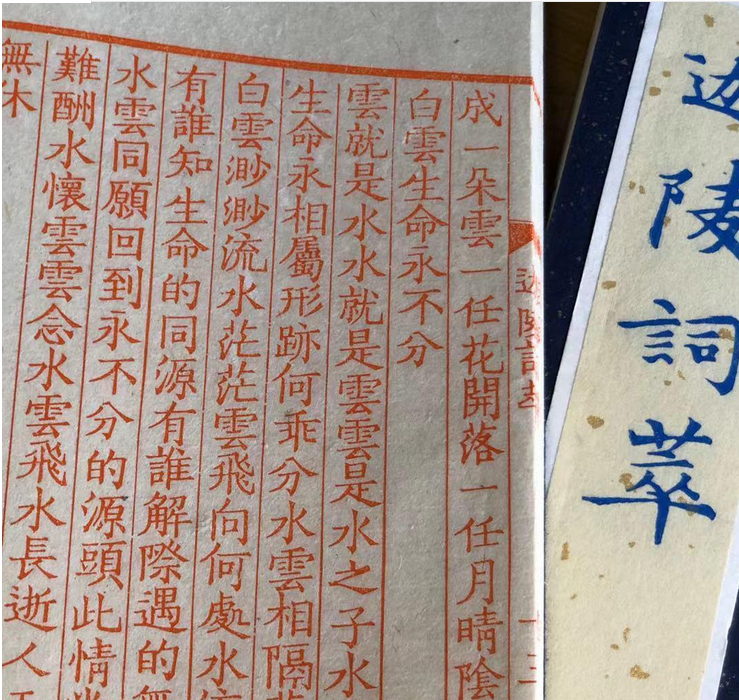 迦陵詞萃
迦陵詞萃
成一朵雲一任花開落一任月晴陰
白雲生命永不分
雲就是水水就是雲雲是水之子水
生命永相屬形跡何乖分水雲相隔
白雲渺渺流水茫茫雲飛向何處水
有誰知生命的同源有誰解際遇的無
水雲同願回到永不分的源頭此情
難酬水懷雲雲念水雲飛水長逝人
無休